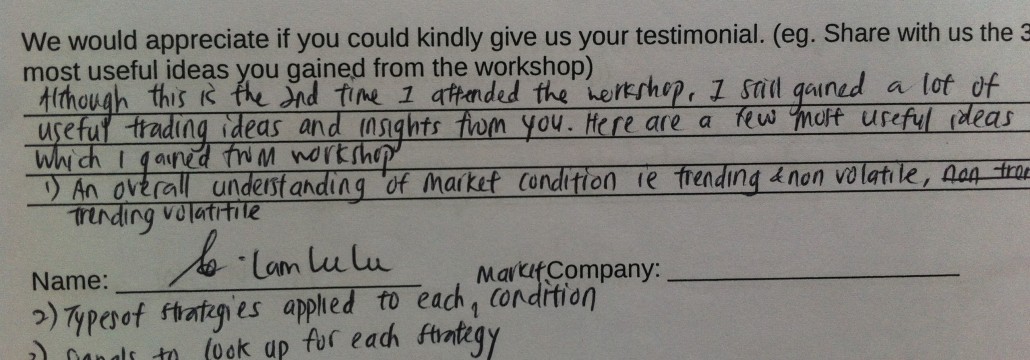 We would appreciate if you could kindly give us your testimonial. (eg. Share with us the 3
most useful ideas you gained from the workshop)
Although this is the 2nd time I attended the workshop, I still gained a lot of
useful trading ideas and insights from you. Here are a few most useful ideas
which I gained from workshop
1) An overall understanding of market condition ie trending & non volatile, non tren
trending volatitile
Name: Lam Lulu Company:
2) Types of strategies applied to each Market condition
look up for each strategy